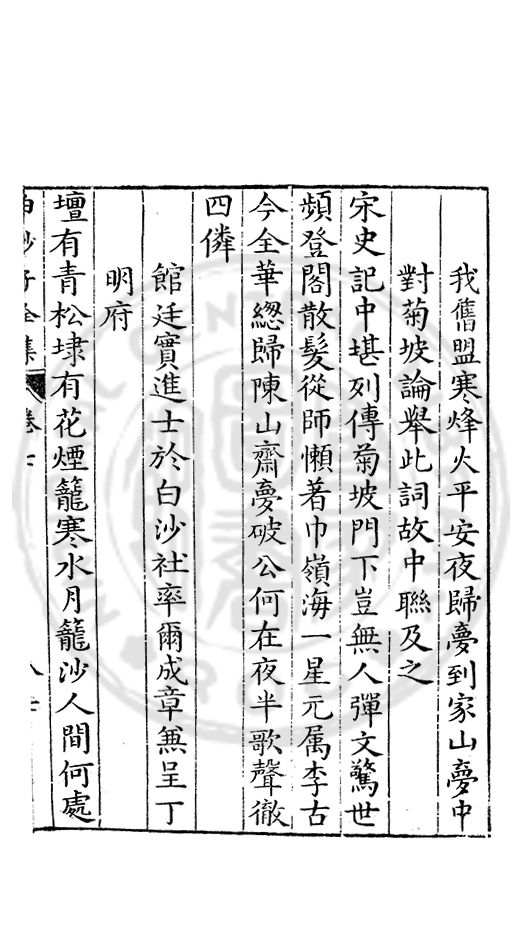 我舊盟寒烽火平安夜歸夢到家山夢中
對菊坡論舉此詞故中聯及之
宋史記中堪列傳菊坡門下豈無人彈文驚世
頻登閣散髮從師懶著巾嶺海一星元属李古
今全華緫歸陳山齋夢破公何在夜半歌聲徹
四隣
館廷實進士於白沙社率爾成章𠔥呈丁
明府
壇有青松埭有花煙籠寒水月籠沙人間何處
白沙子全集 卷七